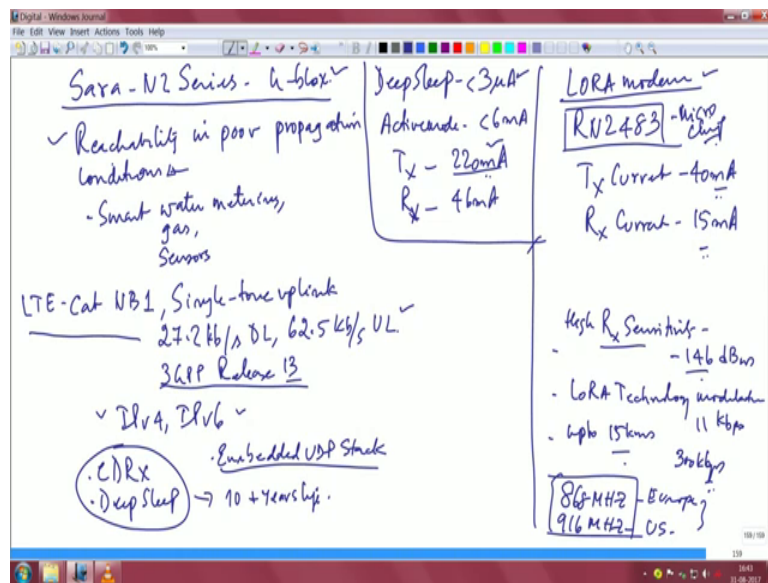 Digital - Windows Journal
File Edit View Insert Actions Tools Help
Sara-N2 Series - U-blox
Reachability in poor propagation
conditions
- Smart water metering,
gas,
Sensors
LTE-Cat NB1, Single-tone uplink
27.2 kb/s DL, 62.5 kb/s UL
3GPP Release 13
IPv4, IPv6
. Embedded UDP Stack
. CDRX
. Deep Sleep → 10 + Years life.
DeepSleep - <3μA
Activemode - <6mA
Tx - 220mA
Rx - 46mA
LORA modem
RN2483 - Microchip
Tx Current - 40mA
Rx Current - 15mA
High Rx Sensitivity -
-146 dBm
. LoRA Technology modulation
11 kbps
. upto 15kms
300kbps
868MHZ - Europe
916MHZ - US.
159/159
159
16:43
31-08-2017